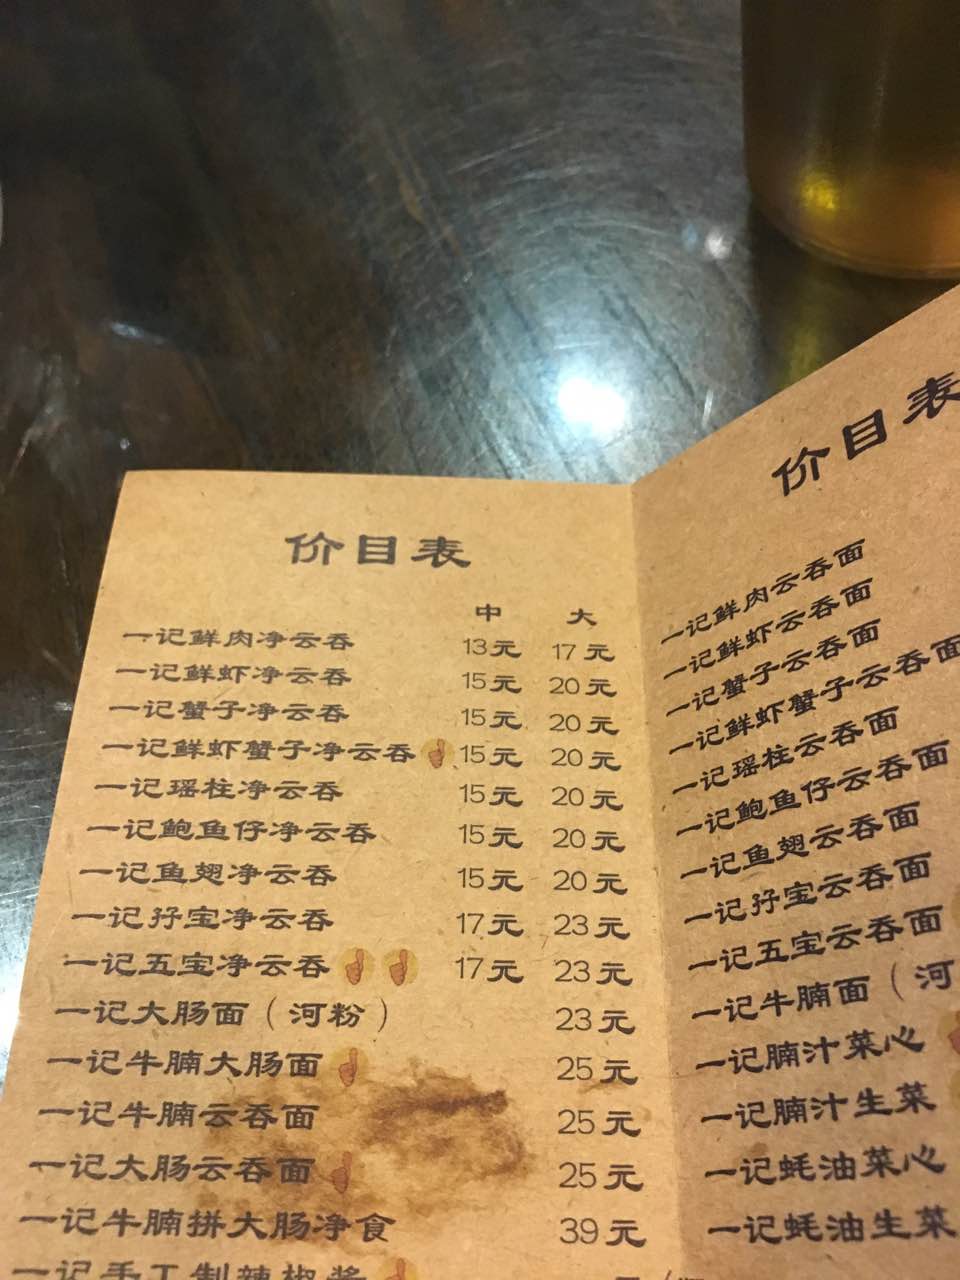 价目表
中 大
一记鲜肉净云吞 13元 17元
一记鲜虾净云吞 15元 20元
一记蟹子净云吞 15元 20元
一记鲜虾蟹子净云吞 15元 20元
一记瑶柱净云吞 15元 20元
一记鲍鱼仔净云吞 15元 20元
一记鱼翅净云吞 15元 20元
一记孖宝净云吞 17元 23元
一记五宝净云吞 17元 23元
一记大肠面（河粉） 23元
一记牛腩大肠面 25元
一记牛腩云吞面 25元
一记大肠云吞面 25元
一记牛腩拼大肠净食 39元
一记手工制辣椒酱
价目表
一记鲜肉云吞面
一记鲜虾云吞面
一记蟹子云吞面
一记鲜虾蟹子云吞面
一记瑶柱云吞面
一记鲍鱼仔云吞面
一记鱼翅云吞面
一记孖宝云吞面
一记五宝云吞面
一记牛腩面（河
一记腩汁菜心
一记腩汁生菜
一记蚝油菜心
一记蚝油生菜